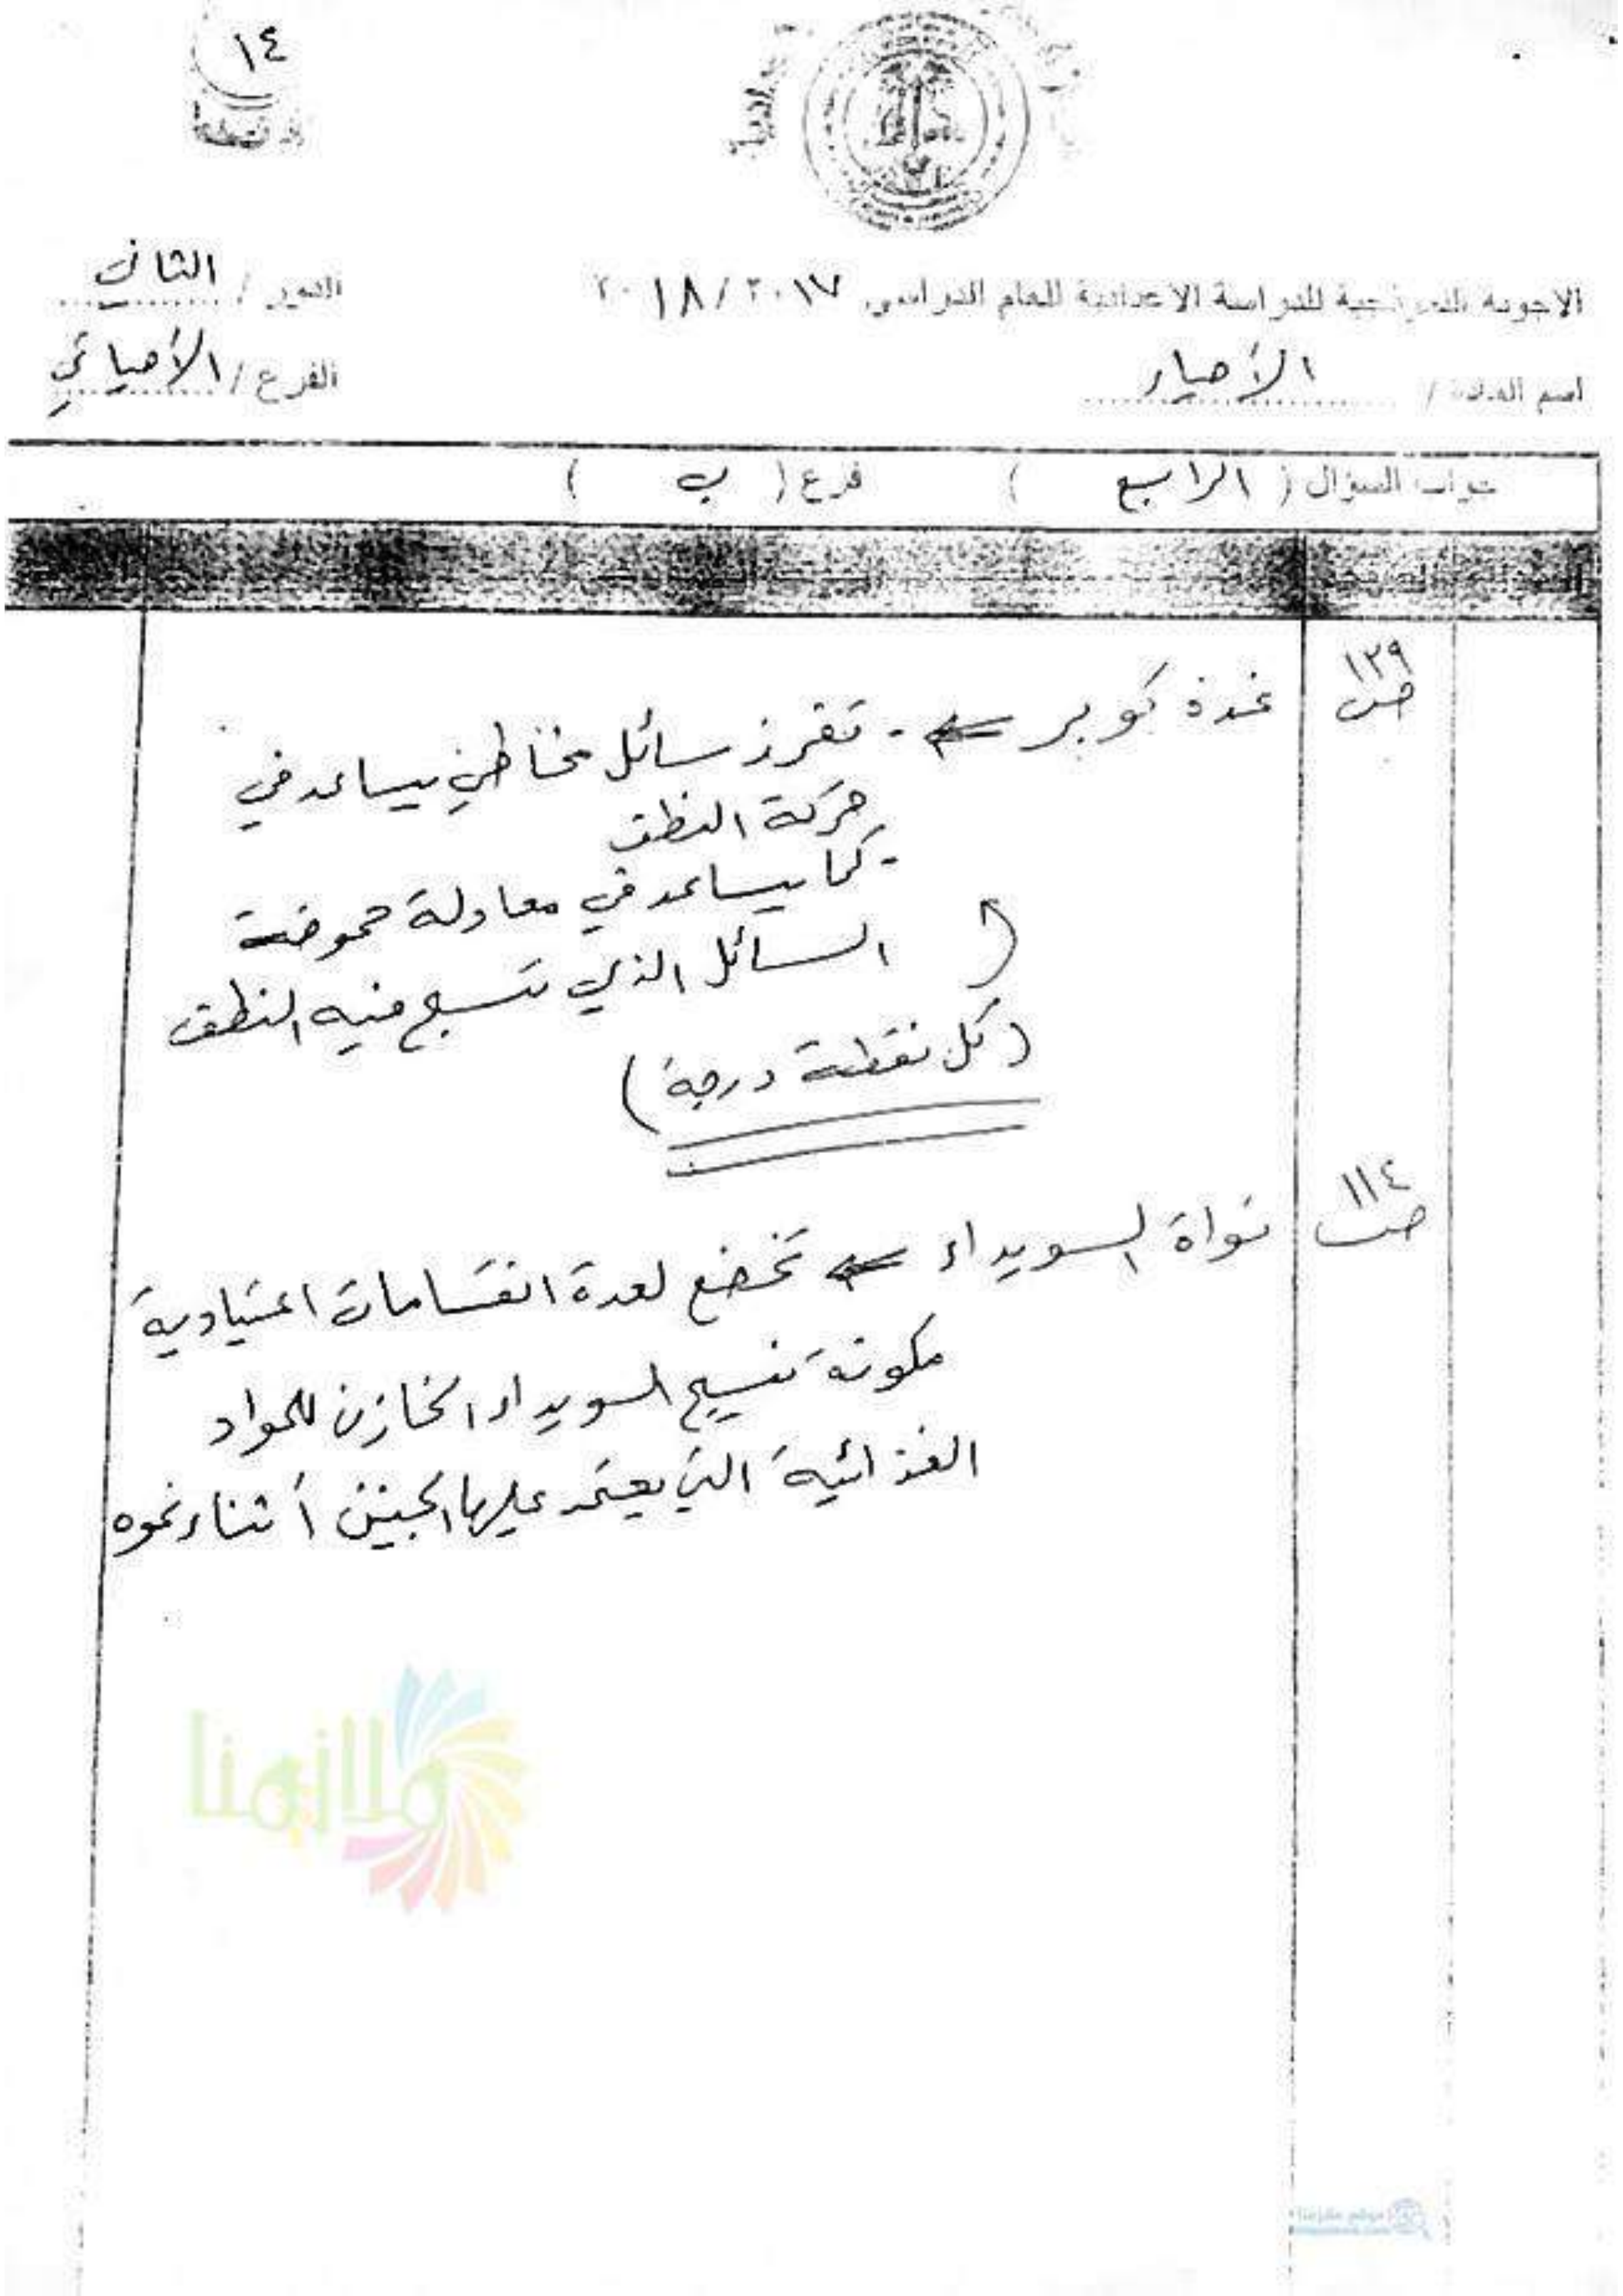 ١٤
الدور / الثاني
الاجوبة النموذجية للدراسة الاعدادية للعام الدراسي ٢٠١٧ / ٢٠١٨
الفرع / الأحيائي
اسم المادة / الأحياء
جواب السؤال ( الرابع ) فرع ( ب )
ص ١٢٩
غدة كوبر ⇐ - تفرز سائل مخاطي يساعد في
حركة النطف
- كما يساعد في معادلة حموضة
السائل الذي تسبح فيه النطف
( كل نقطة درجة )
ص ١١٤
نواة السويداء ⇐ تخضع لعدة انقسامات اعتيادية
مكونة نسيج السويداء الخازن للمواد
الغذائية التي يعتمد عليها الجنين أثناء نموه
ملازمنا
موقع ملازمنا